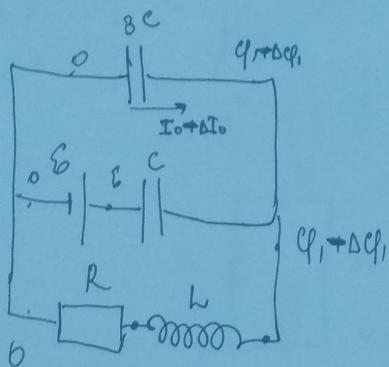 8 C
0
φ₁+Δφ₁
I₀+ΔI₀
ℰ
0
ε
C
φ₁+Δφ₁
R
L
0